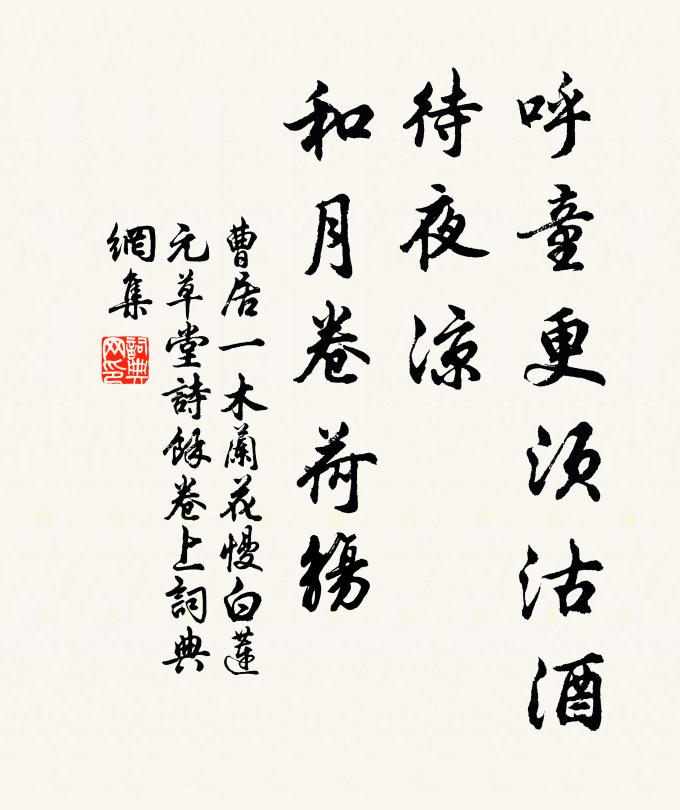 呼童更須沽酒
待夜涼
和月卷荷觴
曹居一木蘭花慢白蓮
元草堂詩餘卷上詞典
網集
詞典網印